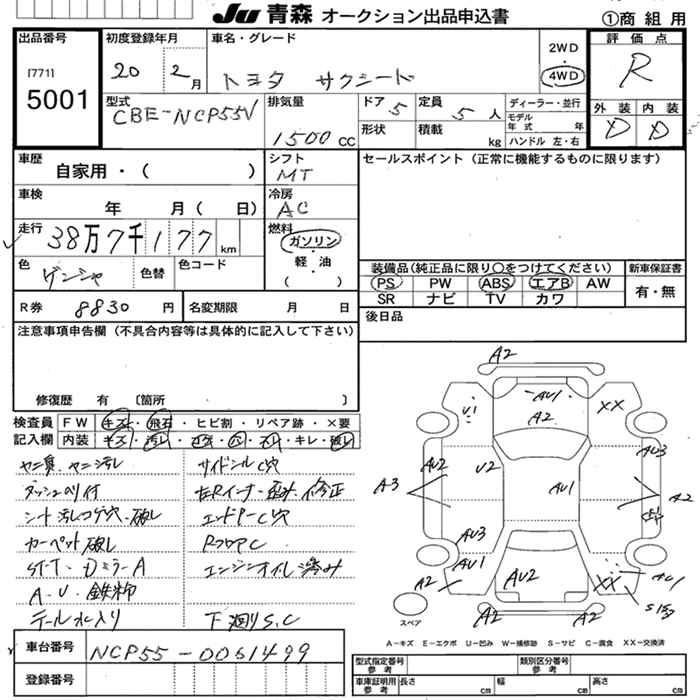 JU 青森 オークション出品申込書
①商組用
出品番号
[771]
5001
初度登録年月
20 2月
車名・グレード
トヨタ サクシード
2WD
4WD
評価点
R
型式
CBE-NCP55V
排気量
1500 CC
ドア 5
定員 5 人
形状
積載 kg
ディーラー・並行
モデル年式 年
ハンドル 左・右
外装 内装
D D
車歴
自家用・( )
シフト
MT
セールスポイント(正常に機能するものに限ります)
車検
年 月( 日)
冷房
AC
走行
38万7千177 km
燃料
ガソリン
軽・油
( )
色
ゲンシャ
色替
色コード
装備品(純正品に限り○をつけてください)
新車保証書
PS PW ABS エアB AW
SR ナビ TV カワ
有・無
R券 8830 円
名変期限 月 日
後日品
注意事項申告欄(不具合内容等は具体的に記入して下さい)
修復歴 有 〔箇所 〕
検査員記入欄
FW キズ・飛石・ヒビ割・リペア跡・×要
内装 キズ・汚レ・コゲ・穴・スレ・キレ・破レ
ヤニ臭、ヤニ汚レ
ダッシュのり付
シート汚レコゲ穴、破レ
カーペット破レ
ST・DミラーA
A・U・鉄粉
テール水入り
サイドシルC穴
エンドアーC穴
RフロアC
エンジンオイル滲み
下廻りS,C
A2
U1
AU1
A2
XX
AU2
U2
AU1
AU3
A3
A2
AU3
AU1
A2
AU2
XX
AU1
A2
A2
スペア
A-キズ E-エクボ U-凹み W-補修跡 S-サビ C-腐食 XX-交換済
車台番号
NCP55-0061499
登録番号
型式指定番号 参考
類別区分番号 参考
車庫証明用 参考
長さ cm
幅 cm
高さ cm